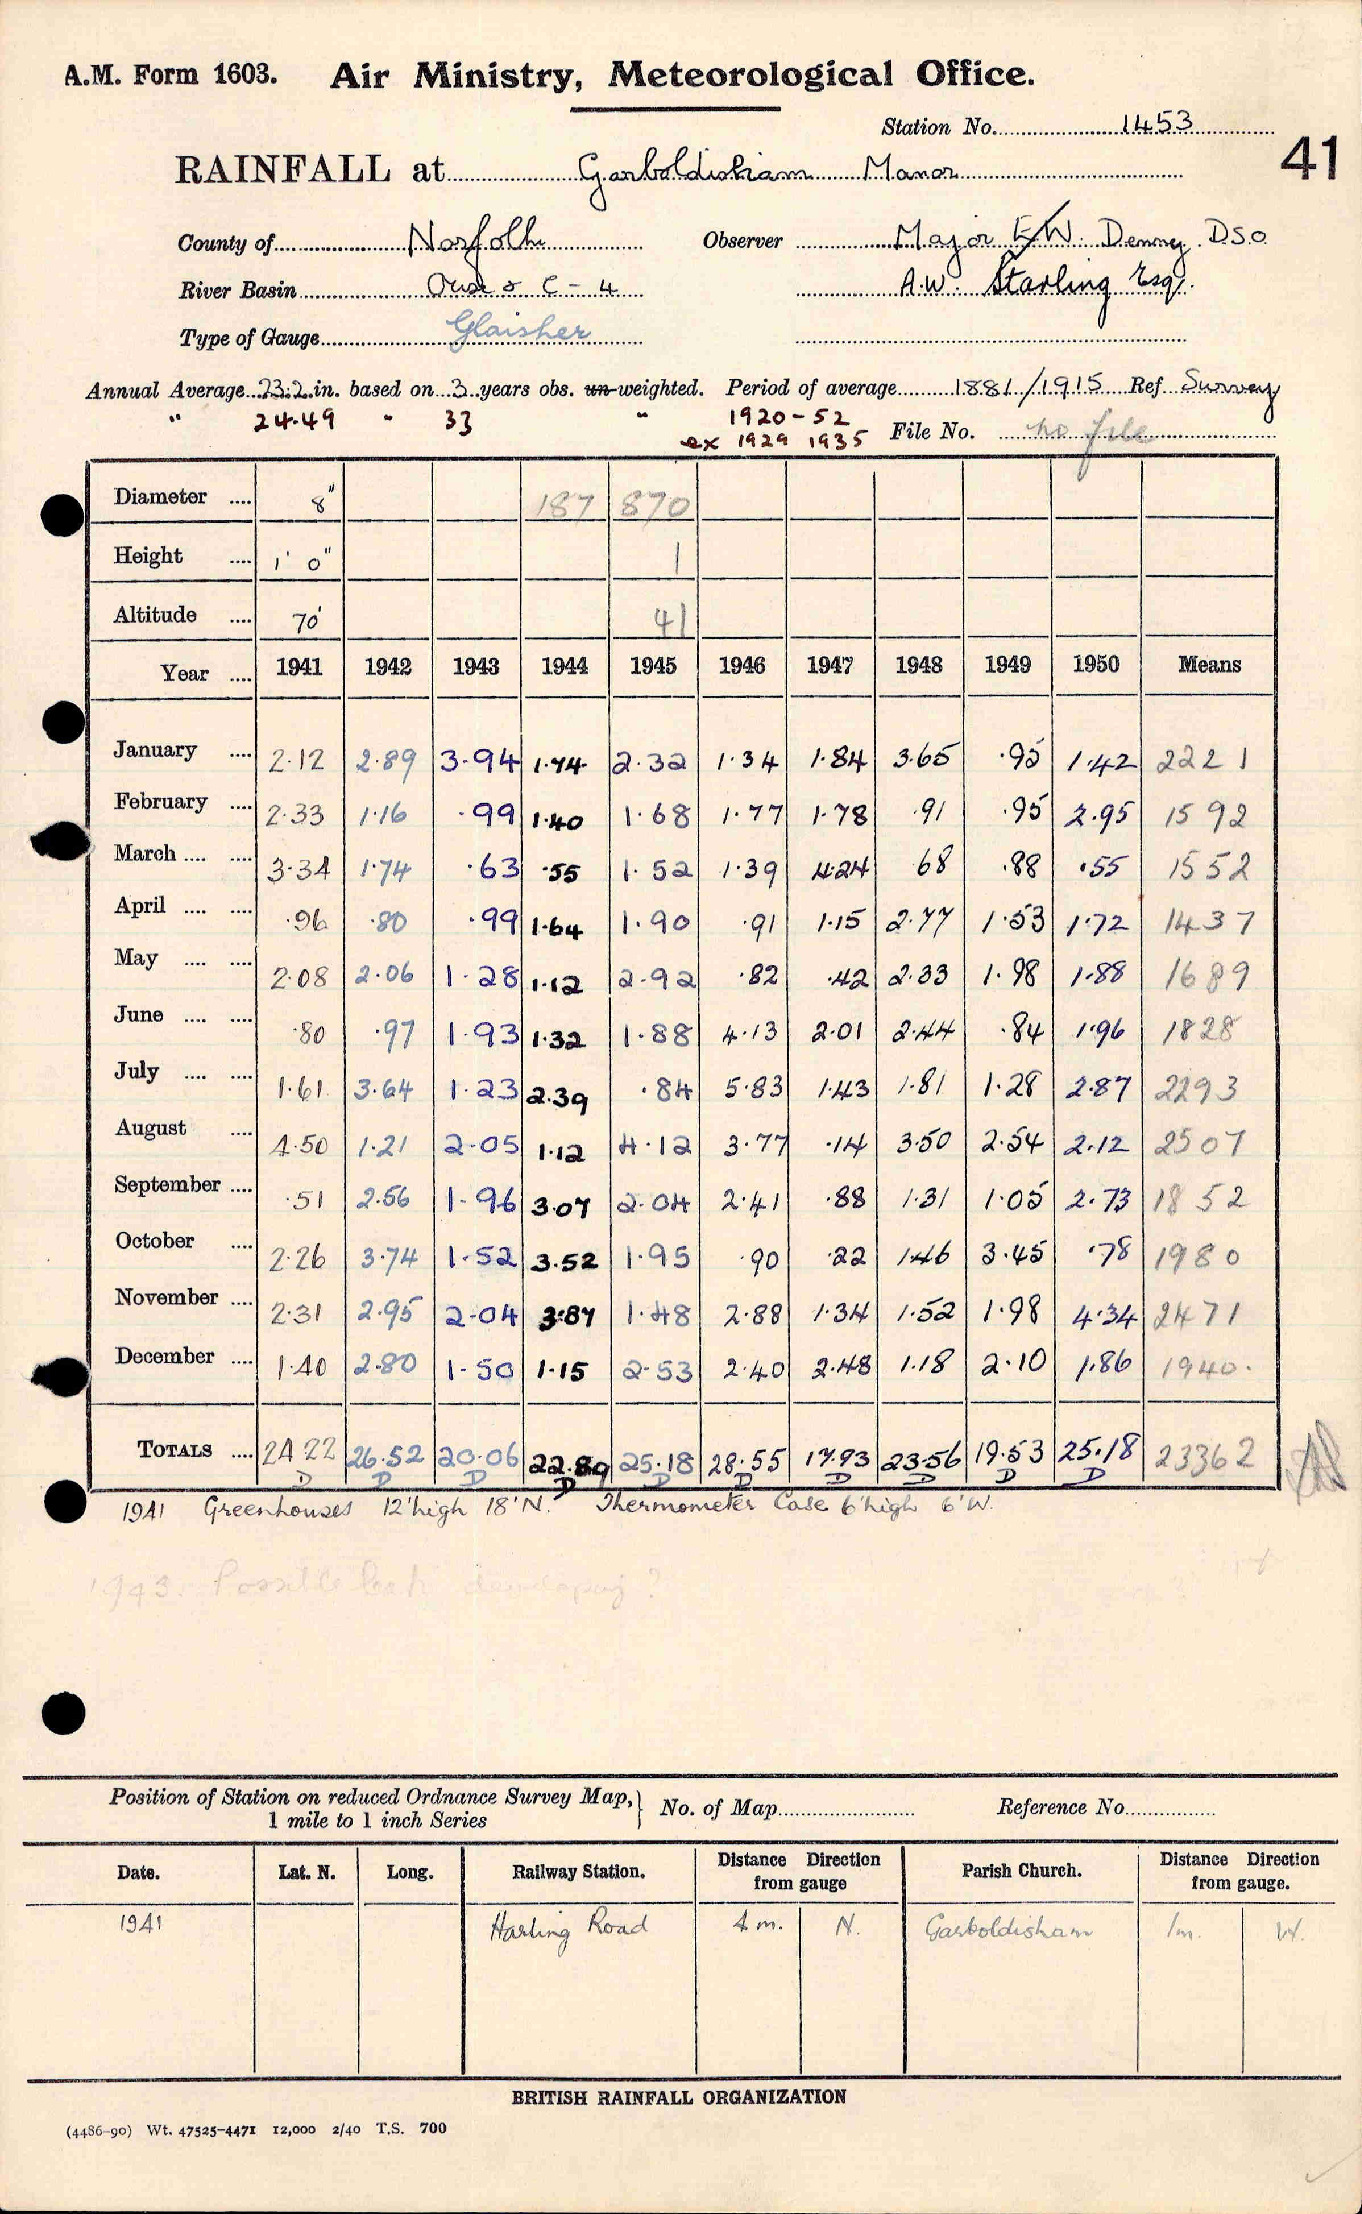 A.M. Form 1603. Air Ministry, Meteorological Office.
Station No. 1453
41
RAINFALL at Garboldisham Manor
County of Norfolk Observer Major E.W. Denny D.S.O
River Basin Ouse & C - 4 A.W. Starling Esq.
Type of Gauge Glaisher
Annual Average 23.2 in. based on 3 years obs. un-weighted. Period of average 1881/1915 Ref Survey
" 24.49 " 33 " 1920-52
ex 1929 1935 File No. no file
Diameter .... 8" 187 870
Height .... 1' 0" 1
Altitude .... 70' 41
Year .... 1941 1942 1943 1944 1945 1946 1947 1948 1949 1950 Means
January .... 2.12 2.89 3.94 1.74 2.32 1.34 1.84 3.65 .95 1.42 2221
February .... 2.33 1.16 .99 1.40 1.68 1.77 1.78 .91 .95 2.95 1592
March .... .... 3.34 1.74 .63 .55 1.52 1.39 4.24 68 .88 .55 1552
April .... .... .96 .80 .99 1.64 1.90 .91 1.15 2.77 1.53 1.72 1437
May .... .... 2.08 2.06 1.28 1.12 2.92 .82 .42 2.33 1.98 1.88 1689
June .... .... .80 .97 1.93 1.32 1.88 4.13 2.01 2.44 .84 1.96 1828
July .... .... 1.61 3.64 1.23 2.39 .84 5.83 1.43 1.81 1.28 2.87 2293
August .... 4.50 1.21 2.05 1.12 4.12 3.77 .14 3.50 2.54 2.12 2507
September .... .51 2.56 1.96 3.07 2.04 2.41 .88 1.31 1.05 2.73 1852
October .... 2.26 3.74 1.52 3.52 1.95 .90 .22 1.46 3.45 .78 1980
November .... 2.31 2.95 2.04 3.87 1.48 2.88 1.34 1.52 1.98 4.34 2471
December .... 1.40 2.80 1.50 1.15 2.53 2.40 2.48 1.18 2.10 1.86 1940.
TOTALS .... 24 22 26.52 20.06 22.89 25.18 28.55 17.93 23.56 19.53 25.18 23362
D D D D D D D D D D
1941 Greenhouses 12' high 18' N. Thermometer Case 6' high 6' W.
1943. Possible leak developing?
Position of Station on reduced Ordnance Survey Map, 1 mile to 1 inch Series } No. of Map Reference No.
Date. Lat. N. Long. Railway Station. Distance Direction from gauge Parish Church. Distance Direction from gauge.
1941 Harling Road 4 m. N. Garboldisham 1m. W.
BRITISH RAINFALL ORGANIZATION
(4486-90) Wt. 47525-4471 12,000 2/40 T.S. 700